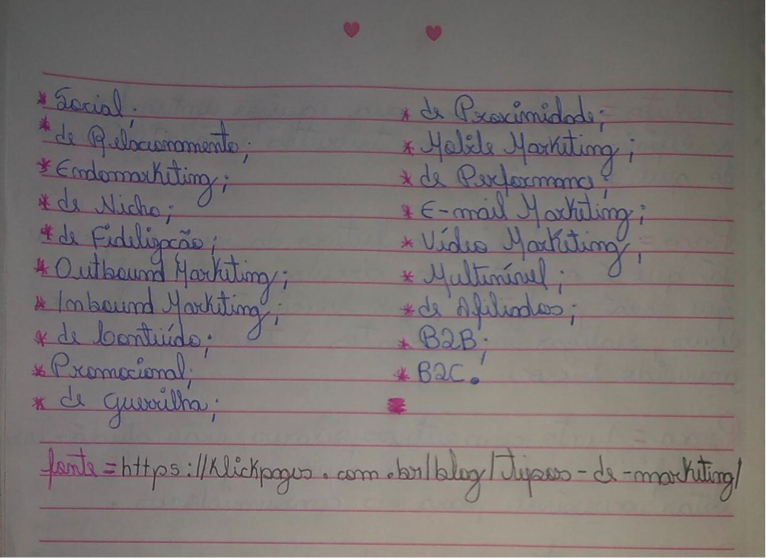 * Social;
* de Relacionamento;
* Endomarketing;
* de Nicho;
* de Fidelização;
* Outbound Marketing;
* Imbound Marketing;
* de Conteúdo;
* Promocional;
* de Guerrilha;
* de Proximidade;
* Mobile Marketing;
* de Performance;
* E-mail Marketing;
* Vídeo Marketing;
* Multinível;
* de Afiliados;
* B2B;
* B2C.
fonte = https://klickpages.com.br/blog/tipos-de-marketing/